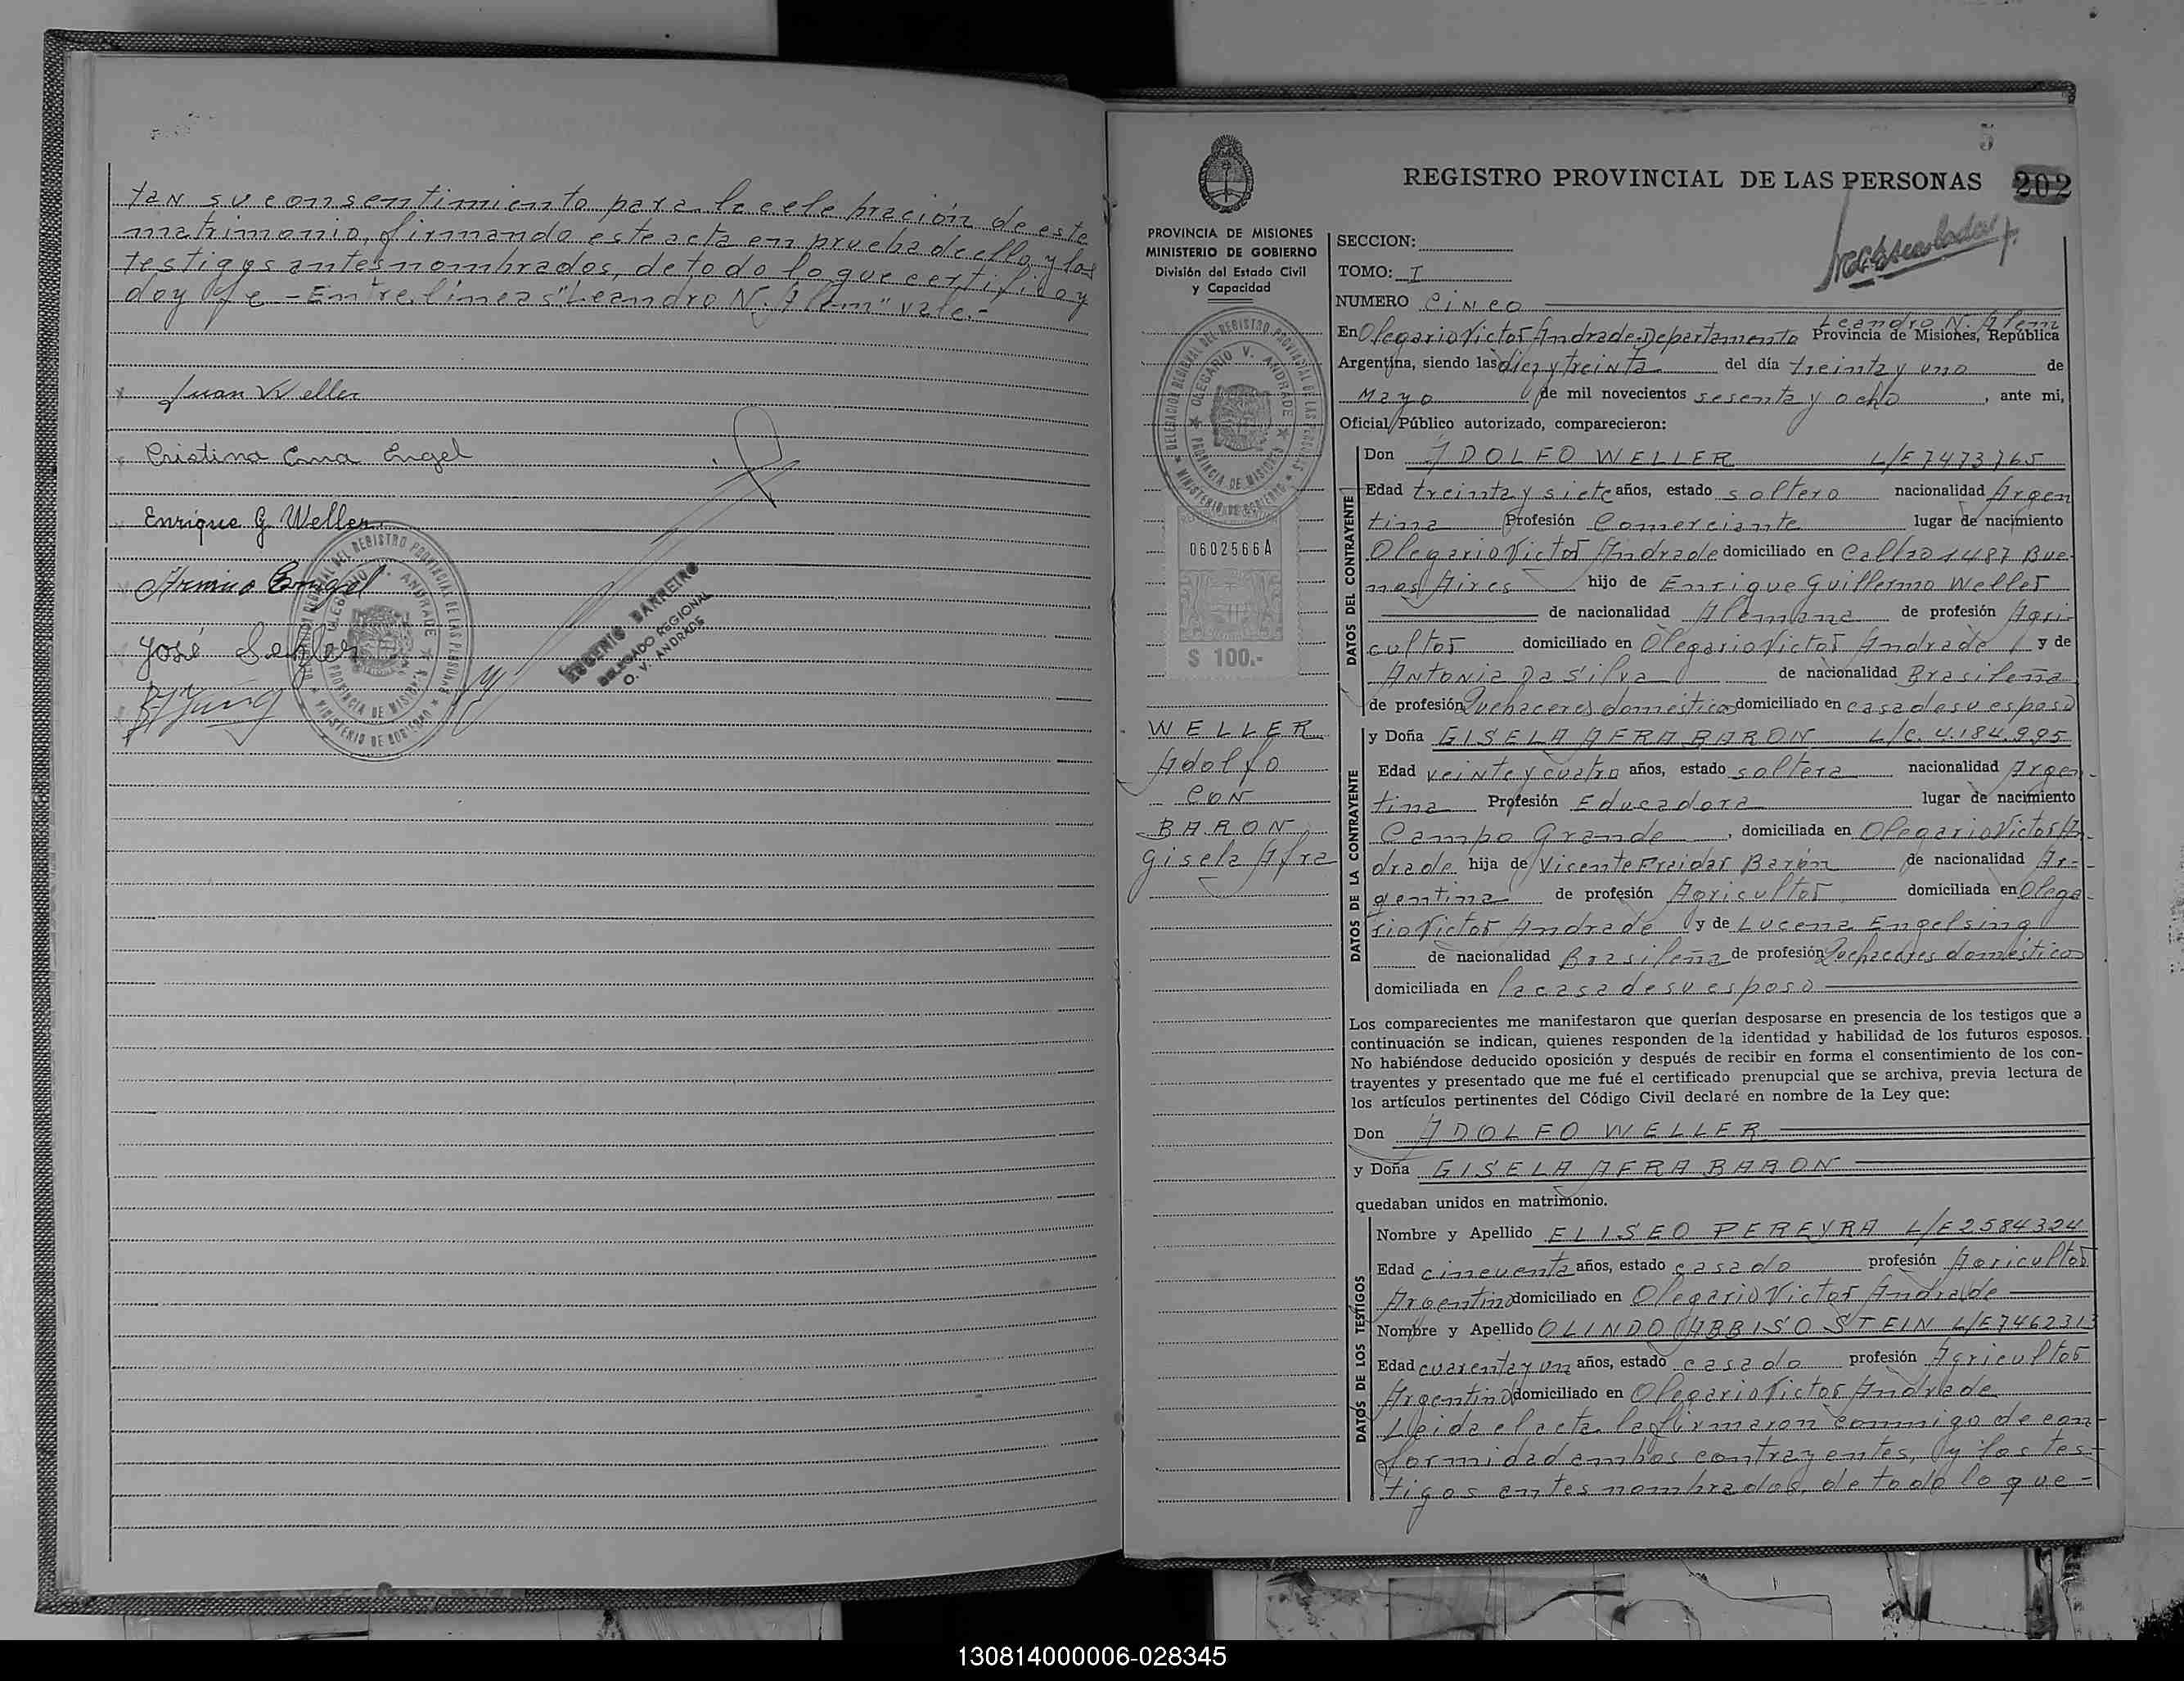 tan su consentimiento para la celebración de este
matrimonio, firmando este acta en prueba de ello y los
testigos antes nombrados, de todo lo que certifico y
doy fe - Entre líneas "Leandro N. Alem" vale.-
Juan Weller
Cristina Ema Engel
Enrique G Weller
Armino Engel
José
DELEGADO REGIONAL
O. V. ANDRADE
5
REGISTRO PROVINCIAL DE LAS PERSONAS 202
PROVINCIA DE MISIONES
MINISTERIO DE GOBIERNO
División del Estado Civil
y Capacidad
0602566A
$ 100.-
WELLER
Adolfo
CON
BARON
Gisela Afra
SECCION:
TOMO: I
NUMERO Cinco
Leandro N. Alem
En Olegario Victor Andrade-Departamento Provincia de Misiones, República
Argentina, siendo las diez y treinta del día treinta y uno de
Mayo de mil novecientos sesenta y ocho, ante mi,
Oficial Público autorizado, comparecieron:
DATOS DEL CONTRAYENTE
Don ADOLFO WELLER L/E 7473765
Edad treinta y siete años, estado soltero nacionalidad Argen
tina Profesión Comerciante lugar de nacimiento
Olegario Victor Andrade domiciliado en Callao 1487 Bue-
nos Aires hijo de Enrique Guillermo Weller
de nacionalidad Alemana de profesión Agri-
cultor domiciliado en Olegario Victor Andrade y de
Antonia Da Silva de nacionalidad Brasileña
de profesión Quehaceres domésticos domiciliado en casa de su esposo
DATOS DE LA CONTRAYENTE
y Doña GISELA AFRA BARON L/C. 4.184.995
Edad veinte y cuatro años, estado soltera nacionalidad Argen-
tina Profesión Educadora lugar de nacimiento
Campo Grande, domiciliada en Olegario Victor An-
drade hija de Vicente Fraidar Barón de nacionalidad Ar-
gentina de profesión Agricultor domiciliada en Olega-
rio Victor Andrade y de Lucena Engelsing
de nacionalidad Brasileña de profesión Quehaceres domésticos
domiciliada en la casa de su esposo
Los comparecientes me manifestaron que querían desposarse en presencia de los testigos que a
continuación se indican, quienes responden de la identidad y habilidad de los futuros esposos.
No habiéndose deducido oposición y después de recibir en forma el consentimiento de los con-
trayentes y presentado que me fué el certificado prenupcial que se archiva, previa lectura de
los artículos pertinentes del Código Civil declaré en nombre de la Ley que:
Don ADOLFO WELLER
y Doña GISELA AFRA BARON
quedaban unidos en matrimonio.
DATOS DE LOS TESTIGOS
Nombre y Apellido ELISEO PEREYRA L/E 2584324
Edad cincuenta años, estado casado profesión Agricultor
Argentino domiciliado en Olegario Victor Andrade
Nombre y Apellido OLINDO ABBISO STEIN L/E 7462313
Edad cuarenta y un años, estado casado profesión Agricultor
Argentino domiciliado en Olegario Victor Andrade
Leida el acta la firmaron conmigo de con-
formidad ambos contrayentes, y los tes-
tigos antes nombrados, de todo lo que-
130814000006-028345